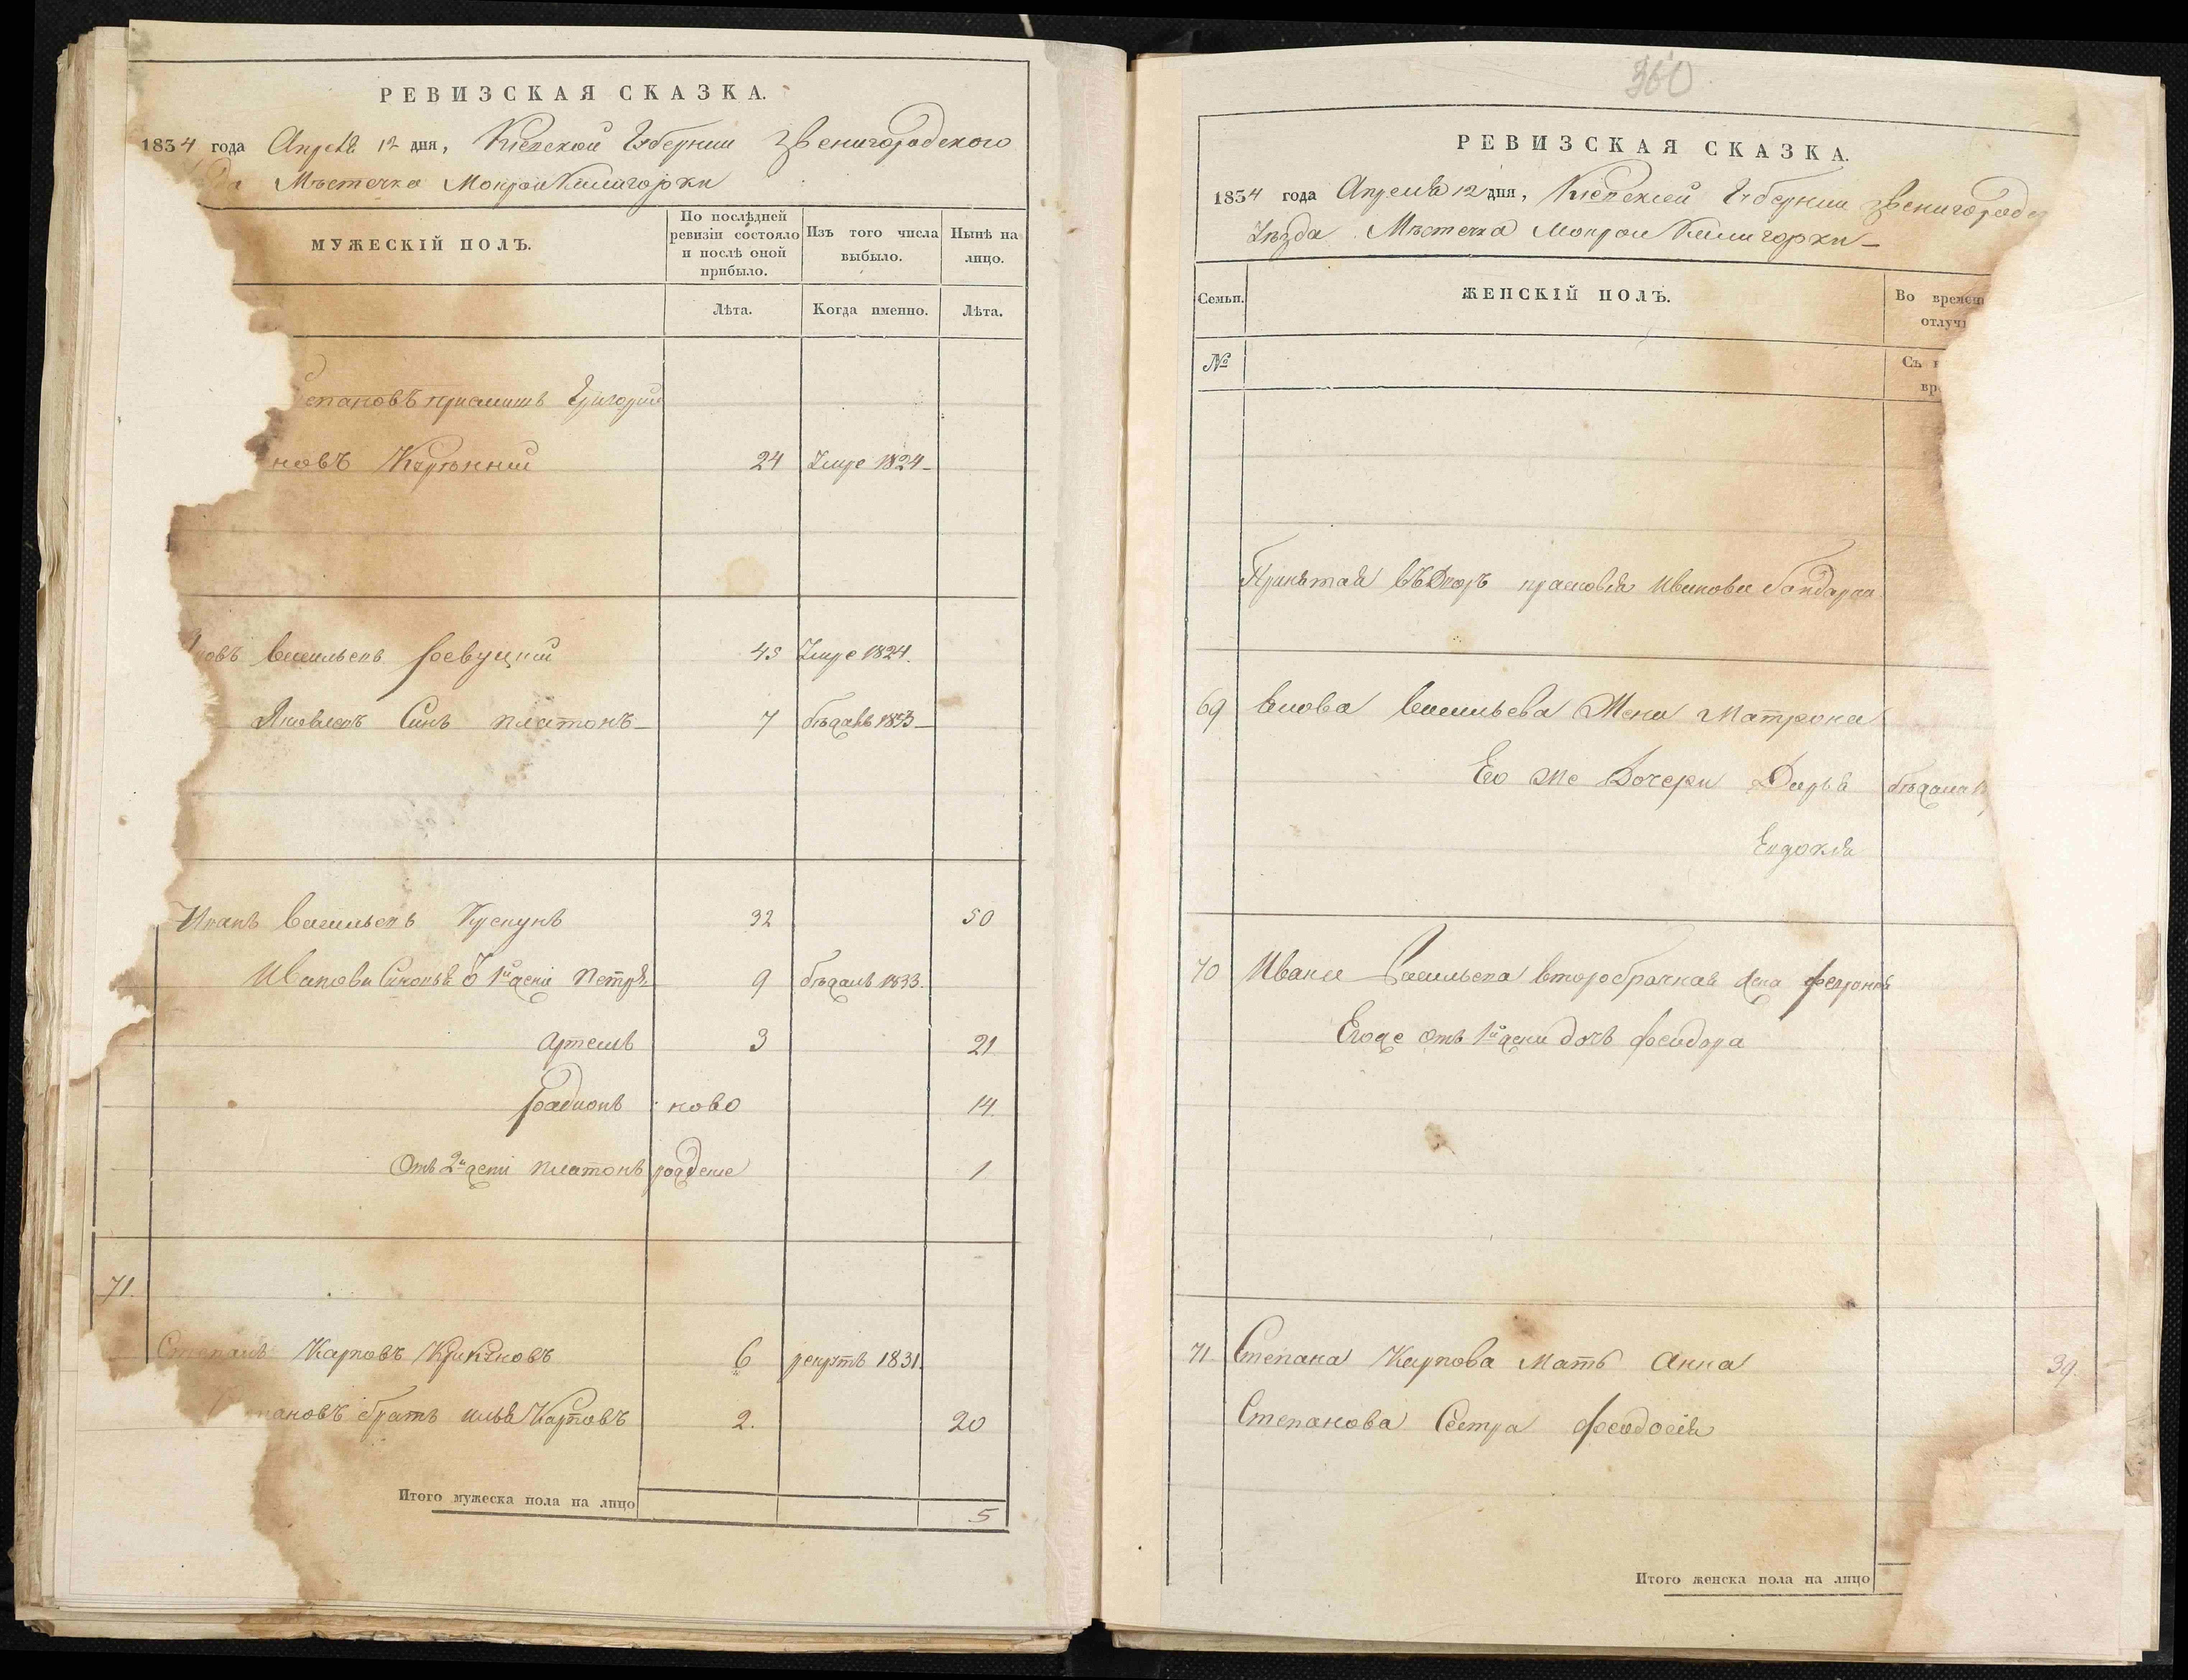 РЕВИЗСКАЯ СКАЗКА.
1834 года Апреля 12 дня, Кіевской Губернии Звенигородского
Мѣстечка Мокрой Калигорки
МУЖЕСКІЙ ПОЛЪ.
По послѣдней ревизіи состояло и послѣ оной прибыло.
Изъ того числа выбыло.
Нынѣ на лицо.
Лѣта.
Когда именно.
Лѣта.
епановъ Григорий
новъ 24 Умре 1824
овъ Васильевъ 45 Умре 1824.
Яковлевъ Синъ Платонъ 7 бѣжавъ 1833
Иванъ Васильевъ 32 50
Иванови Синовья 1й жени Петръ 9 бѣжавъ 1833.
Артемъ 3 21
Радионъ ново 14.
Отъ 2й жени Платонъ рождение 1
71.
Степанъ Карповъ 6 рекрутъ 1831.
пановъ братъ Илья Карповъ 2. 20
Итого мужеска пола на лицо 5
360
РЕВИЗСКАЯ СКАЗКА.
1834 года Апреля 12 дня, Кіевской Губернии Звенигородс
Уѣзда Мѣстечка Мокрой Калигорки
Семьи.
ЖЕНСКІЙ ПОЛЪ.
Во времен
отлуч
№
Съ
вре
Принятая въ Дворъ Прасковія Иванова
69 Васильева Жена Матрона
Его же Дочери Дарья бѣжала
Евдокія
70 Ивана Васильева второбрачная жена
Егоже отъ 1й жени дочь Феодора
71 Степана Карпова Мать Анна 39.
Степанова Сестра Феодосія
Итого женска пола на лицо